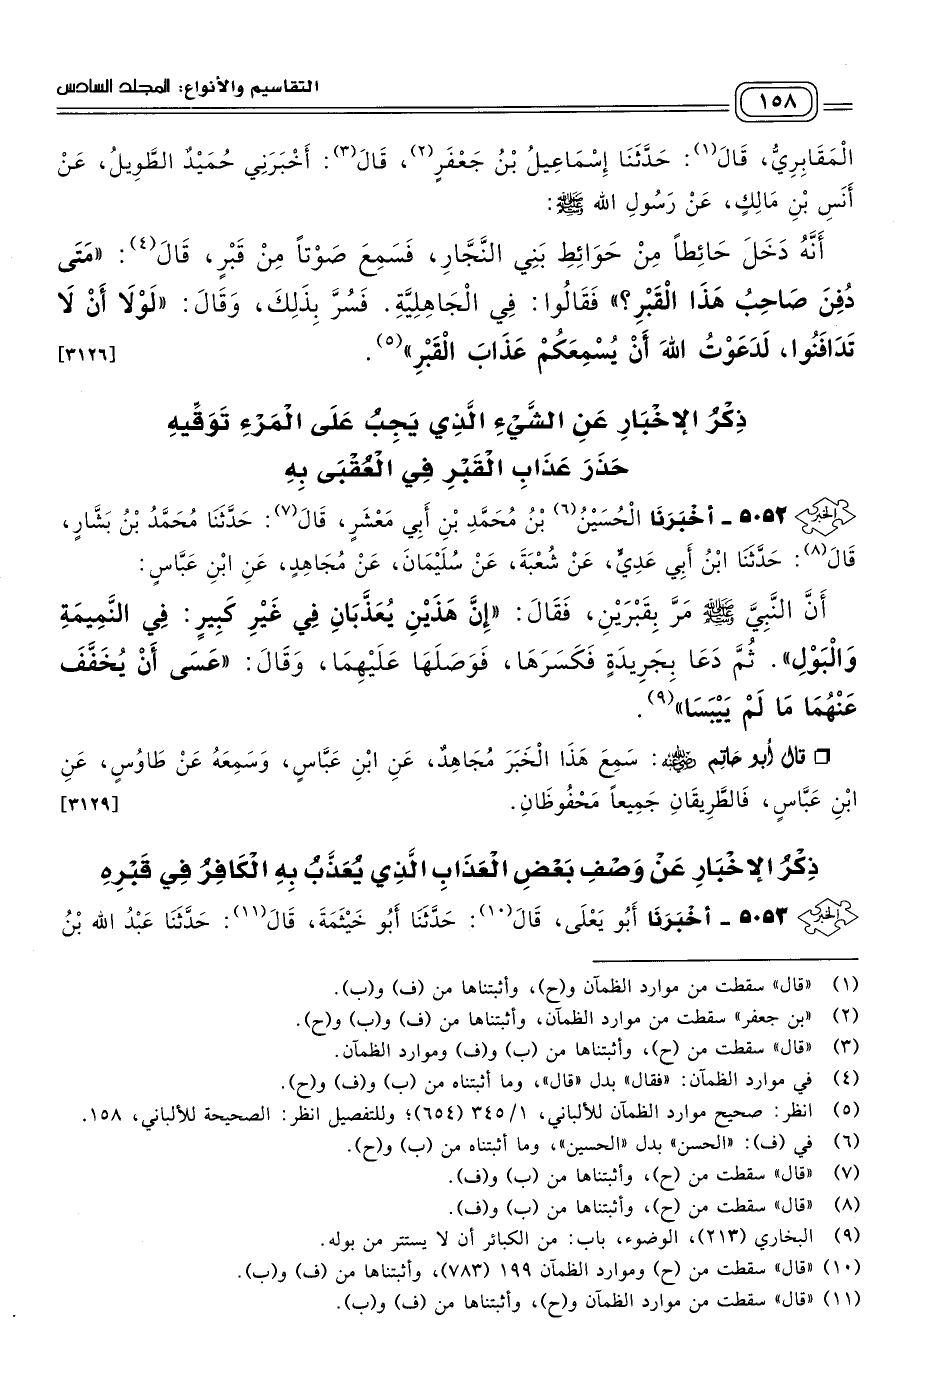 التقاسيم والأنواع: المجلد السادس
١٥٨
الْمَقَابِرِيُّ، قَالَ(١): حَدَّثَنَا إِسْمَاعِيلُ بْنُ جَعْفَرٍ(٢)، قَالَ(٣): أَخْبَرَنِي حُمَيْدٌ الطَّوِيلُ، عَنْ
أَنَسِ بْنِ مَالِكٍ، عَنْ رَسُولِ اللهِ ﷺ:
أَنَّهُ دَخَلَ حَائِطاً مِنْ حَوَائِطِ بَنِي النَّجَّارِ، فَسَمِعَ صَوْتاً مِنْ قَبْرٍ، قَالَ(٤): «مَتَى
دُفِنَ صَاحِبُ هَذَا الْقَبْرِ؟» فَقَالُوا: فِي الْجَاهِلِيَّةِ. فَسُرَّ بِذَلِكَ، وَقَالَ: «لَوْلَا أَنْ لَا
تَدَافَنُوا، لَدَعَوْتُ اللهَ أَنْ يُسْمِعَكُمْ عَذَابَ الْقَبْرِ»(٥). [٣١٢٦]
ذِكْرُ الإخْبَارِ عَنِ الشَّيْءِ الَّذِي يَجِبُ عَلَى الْمَرْءِ تَوَقِّيهِ
حَذَرَ عَذَابِ الْقَبْرِ فِي الْعُقْبَى بِهِ
٥٠٥٢ - أخْبَرَنَا الْحُسَيْنُ(٦) بْنُ مُحَمَّدِ بْنِ أَبِي مَعْشَرٍ، قَالَ(٧): حَدَّثَنَا مُحَمَّدُ بْنُ بَشَّارٍ،
قَالَ(٨): حَدَّثَنَا ابْنُ أَبِي عَدِيٍّ، عَنْ شُعْبَةَ، عَنْ سُلَيْمَانَ، عَنْ مُجَاهِدٍ، عَنِ ابْنِ عَبَّاسٍ:
أَنَّ النَّبِيَّ ﷺ مَرَّ بِقَبْرَيْنِ، فَقَالَ: «إِنَّ هَذَيْنِ يُعَذَّبَانِ فِي غَيْرِ كَبِيرٍ: فِي النَّمِيمَةِ
وَالْبَوْلِ». ثُمَّ دَعَا بِجَرِيدَةٍ فَكَسَرَهَا، فَوَصَلَهَا عَلَيْهِمَا، وَقَالَ: «عَسَى أَنْ يُخَفَّفَ
عَنْهُمَا مَا لَمْ يَيْبَسَا»(٩).
❒ قال أبو حَاتِم: سَمِعَ هَذَا الْخَبَرَ مُجَاهِدٌ، عَنِ ابْنِ عَبَّاسٍ، وَسَمِعَهُ عَنْ طَاوُسٍ، عَنِ
ابْنِ عَبَّاسٍ، فَالطَّرِيقَانِ جَمِيعاً مَحْفُوظَانِ. [٣١٢٩]
ذِكْرُ الإخْبَارِ عَنْ وَصْفِ بَعْضِ الْعَذَابِ الَّذِي يُعَذَّبُ بِهِ الْكَافِرُ فِي قَبْرِهِ
٥٠٥٣ - أخْبَرَنَا أَبُو يَعْلَى، قَالَ(١٠): حَدَّثَنَا أَبُو خَيْثَمَةَ، قَالَ(١١): حَدَّثَنَا عَبْدُ اللهِ بْنُ
(١) «قال» سقطت من موارد الظمآن و(ح)، وأثبتناها من (ف) و(ب).
(٢) «بن جعفر» سقطت من موارد الظمآن، وأثبتناها من (ف) و(ب) و(ح).
(٣) «قال» سقطت من (ح)، وأثبتناها من (ب) و(ف) وموارد الظمآن.
(٤) في موارد الظمآن: «فقال» بدل «قال»، وما أثبتناه من (ب) و(ف) و(ح).
(٥) انظر: صحيح موارد الظمآن للألباني، ١/ ٣٤٥ (٦٥٤)؛ وللتفصيل انظر: الصحيحة للألباني، ١٥٨.
(٦) في (ف): «الحسن» بدل «الحسين»، وما أثبتناه من (ب) و(ح).
(٧) «قال» سقطت من (ح)، وأثبتناها من (ب) و(ف).
(٨) «قال» سقطت من (ح)، وأثبتناها من (ب) و(ف).
(٩) البخاري (٢١٣)، الوضوء، باب: من الكبائر أن لا يستتر من بوله.
(١٠) «قال» سقطت من (ح) وموارد الظمآن ١٩٩ (٧٨٣)، وأثبتناها من (ف) و(ب).
(١١) «قال» سقطت من موارد الظمآن و(ح)، وأثبتناها من (ف) و(ب).